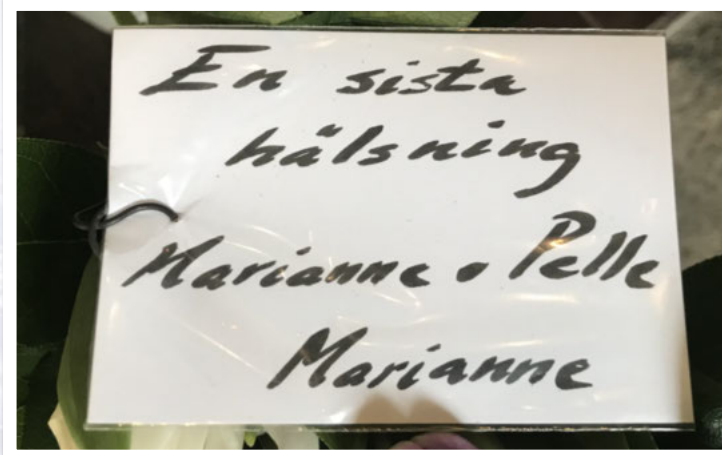 En sista
hälsning
Marianne o Pelle
Marianne